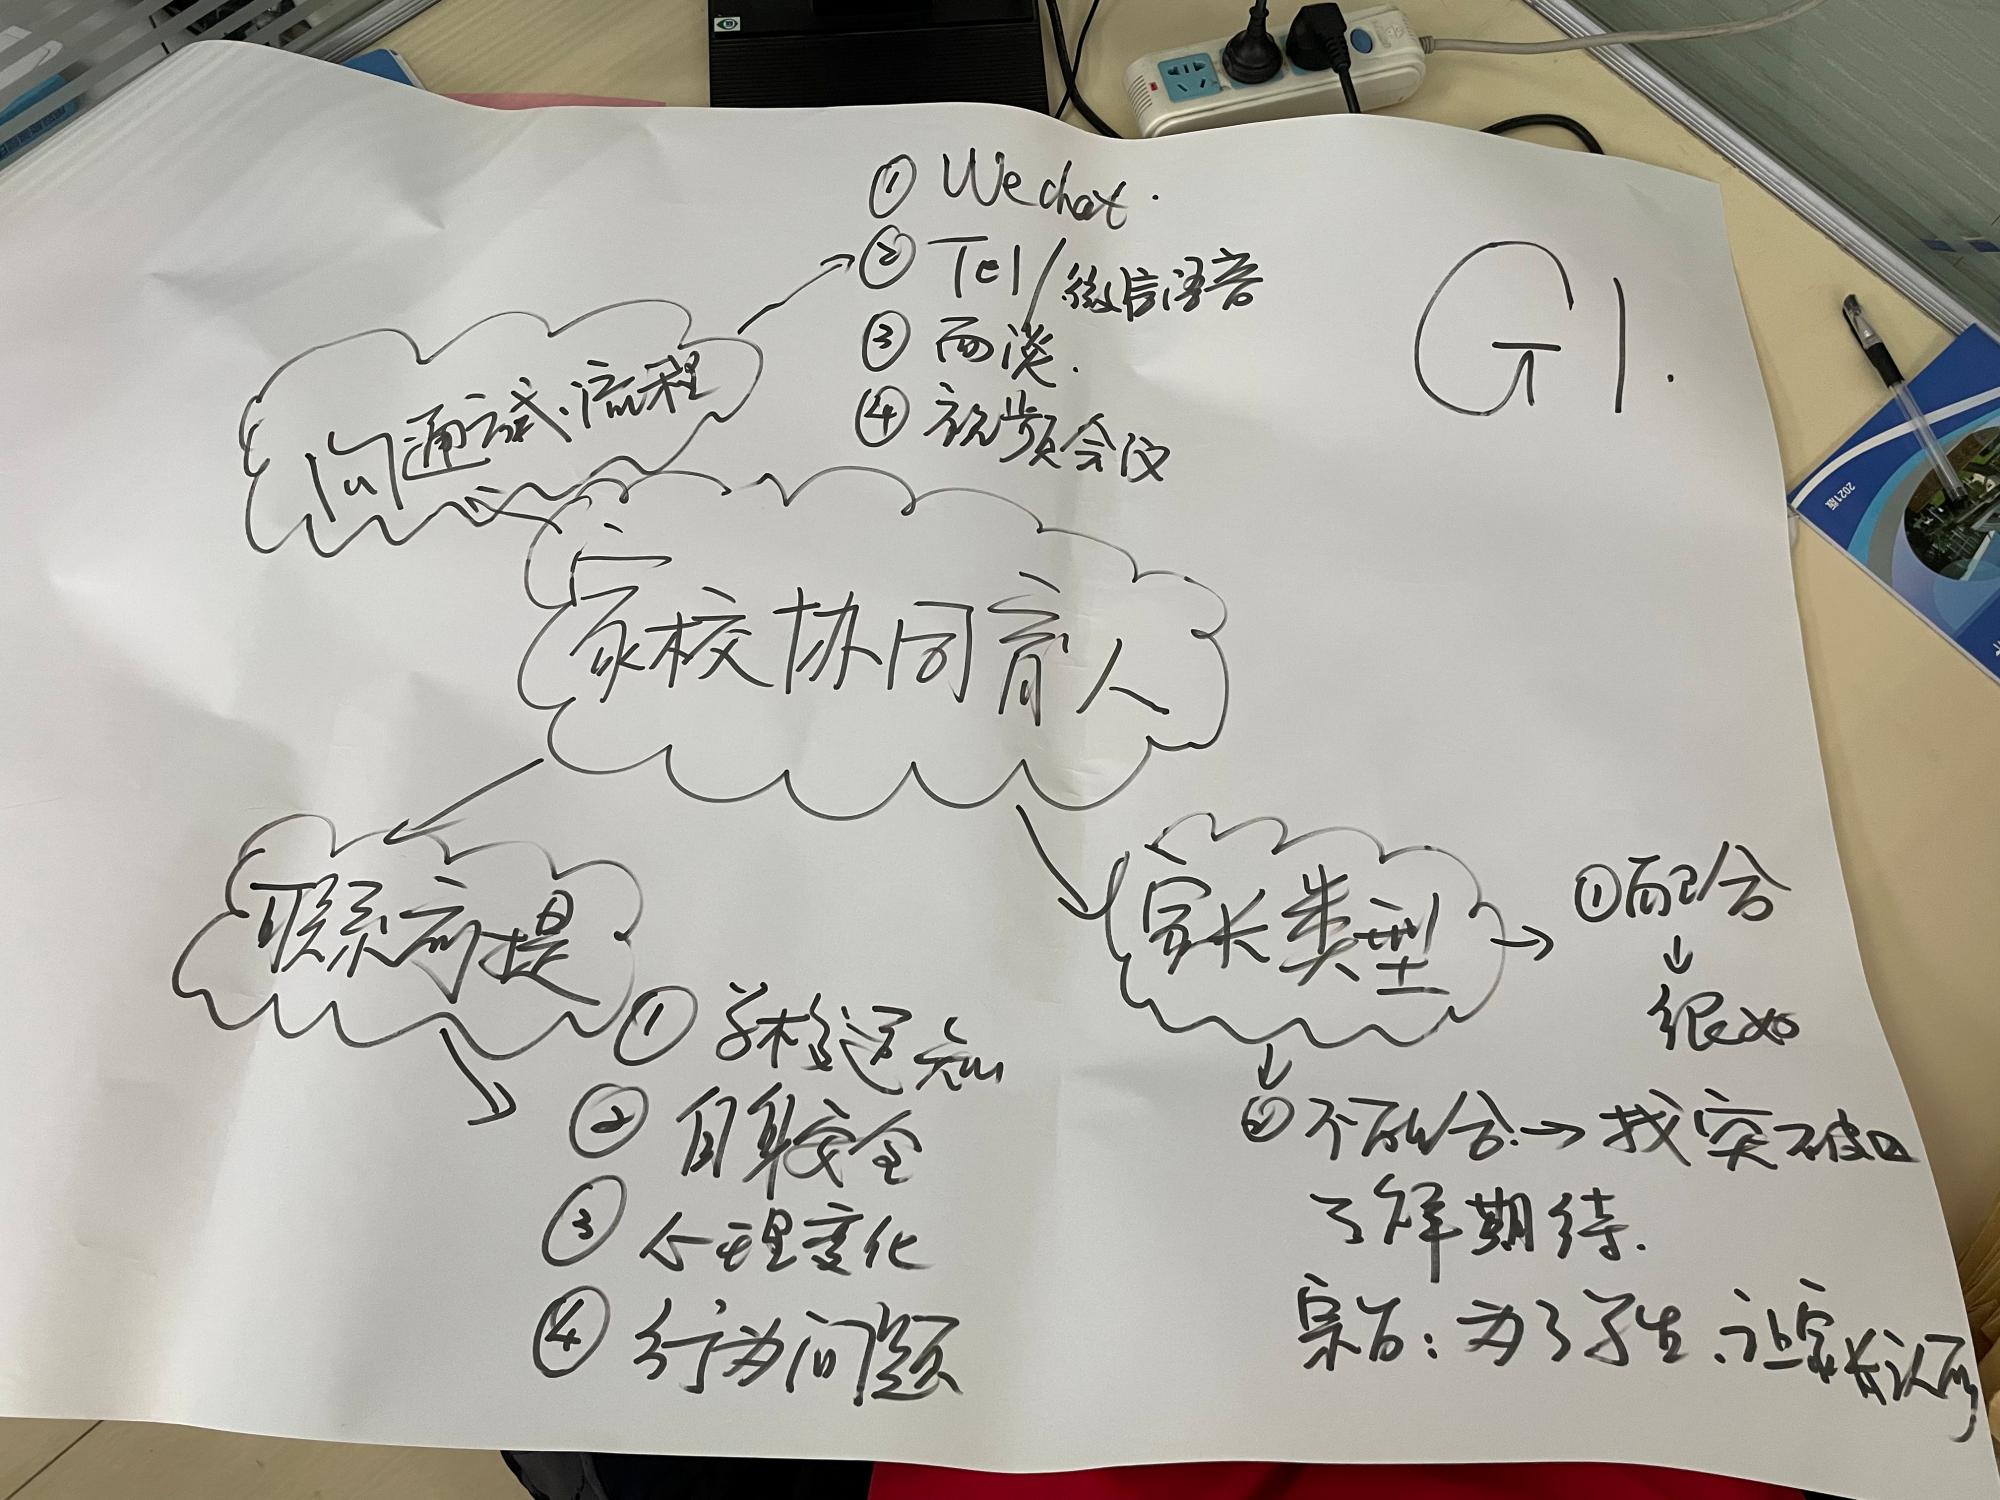 ① Wechat.
② Tel/微信语音
③ 面谈.
④ 视频会议
G1.
沟通方式、流程
家校协同育人
联系前提
① 学校通知
② 自身安全
③ 心理变化
④ 行为问题
家长类型
① 配合
很好
② 不配合 → 找突破口
了解期待.
宗旨：为了学生、让家长认同
2021版